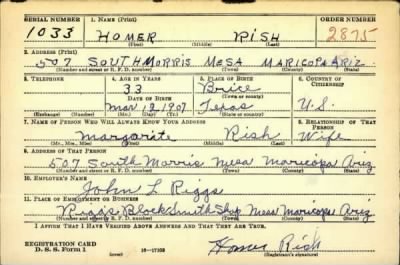 SERIAL NUMBER 1. Name (Print) ORDER NUMBER
1033 HOMER RISH 2875
(First) (Middle) (Last)
2. Address (Print)
507 SOUTH MORRIS MESA MARICOPA ARIZ
(Number and street or R. F. D. number) (Town) (County) (State)
3. Telephone 4. Age in Years 5. Place of Birth 6. Country of Citizenship
33 Brice
Date of Birth (Town or county)
Mar 12 1907 Texas U.S.
(Exchange) (No.) (Mo.) (Day) (Yr.) (State or country)
7. Name of Person Who Will Always Know Your Address 8. Relationship of That Person
Margarite Rish Wife
(Mr., Mrs., Miss) (First) (Middle) (Last)
9. Address of That Person
507 South Morris Mesa Maricopa Ariz
(Number and street or R. F. D. number) (Town) (County) (State)
10. Employer's Name
John L Riggs
11. Place of Employment or Business
Riggs Black Smith Shop Mesa Maricopa Ariz
(Number and street or R. F. D. number) (Town) (County) (State)
I Affirm That I Have Verified Above Answers and That They Are True.
REGISTRATION CARD
D. S. S. Form 1 16—17105 Homer Rish
(Registrant's signature)